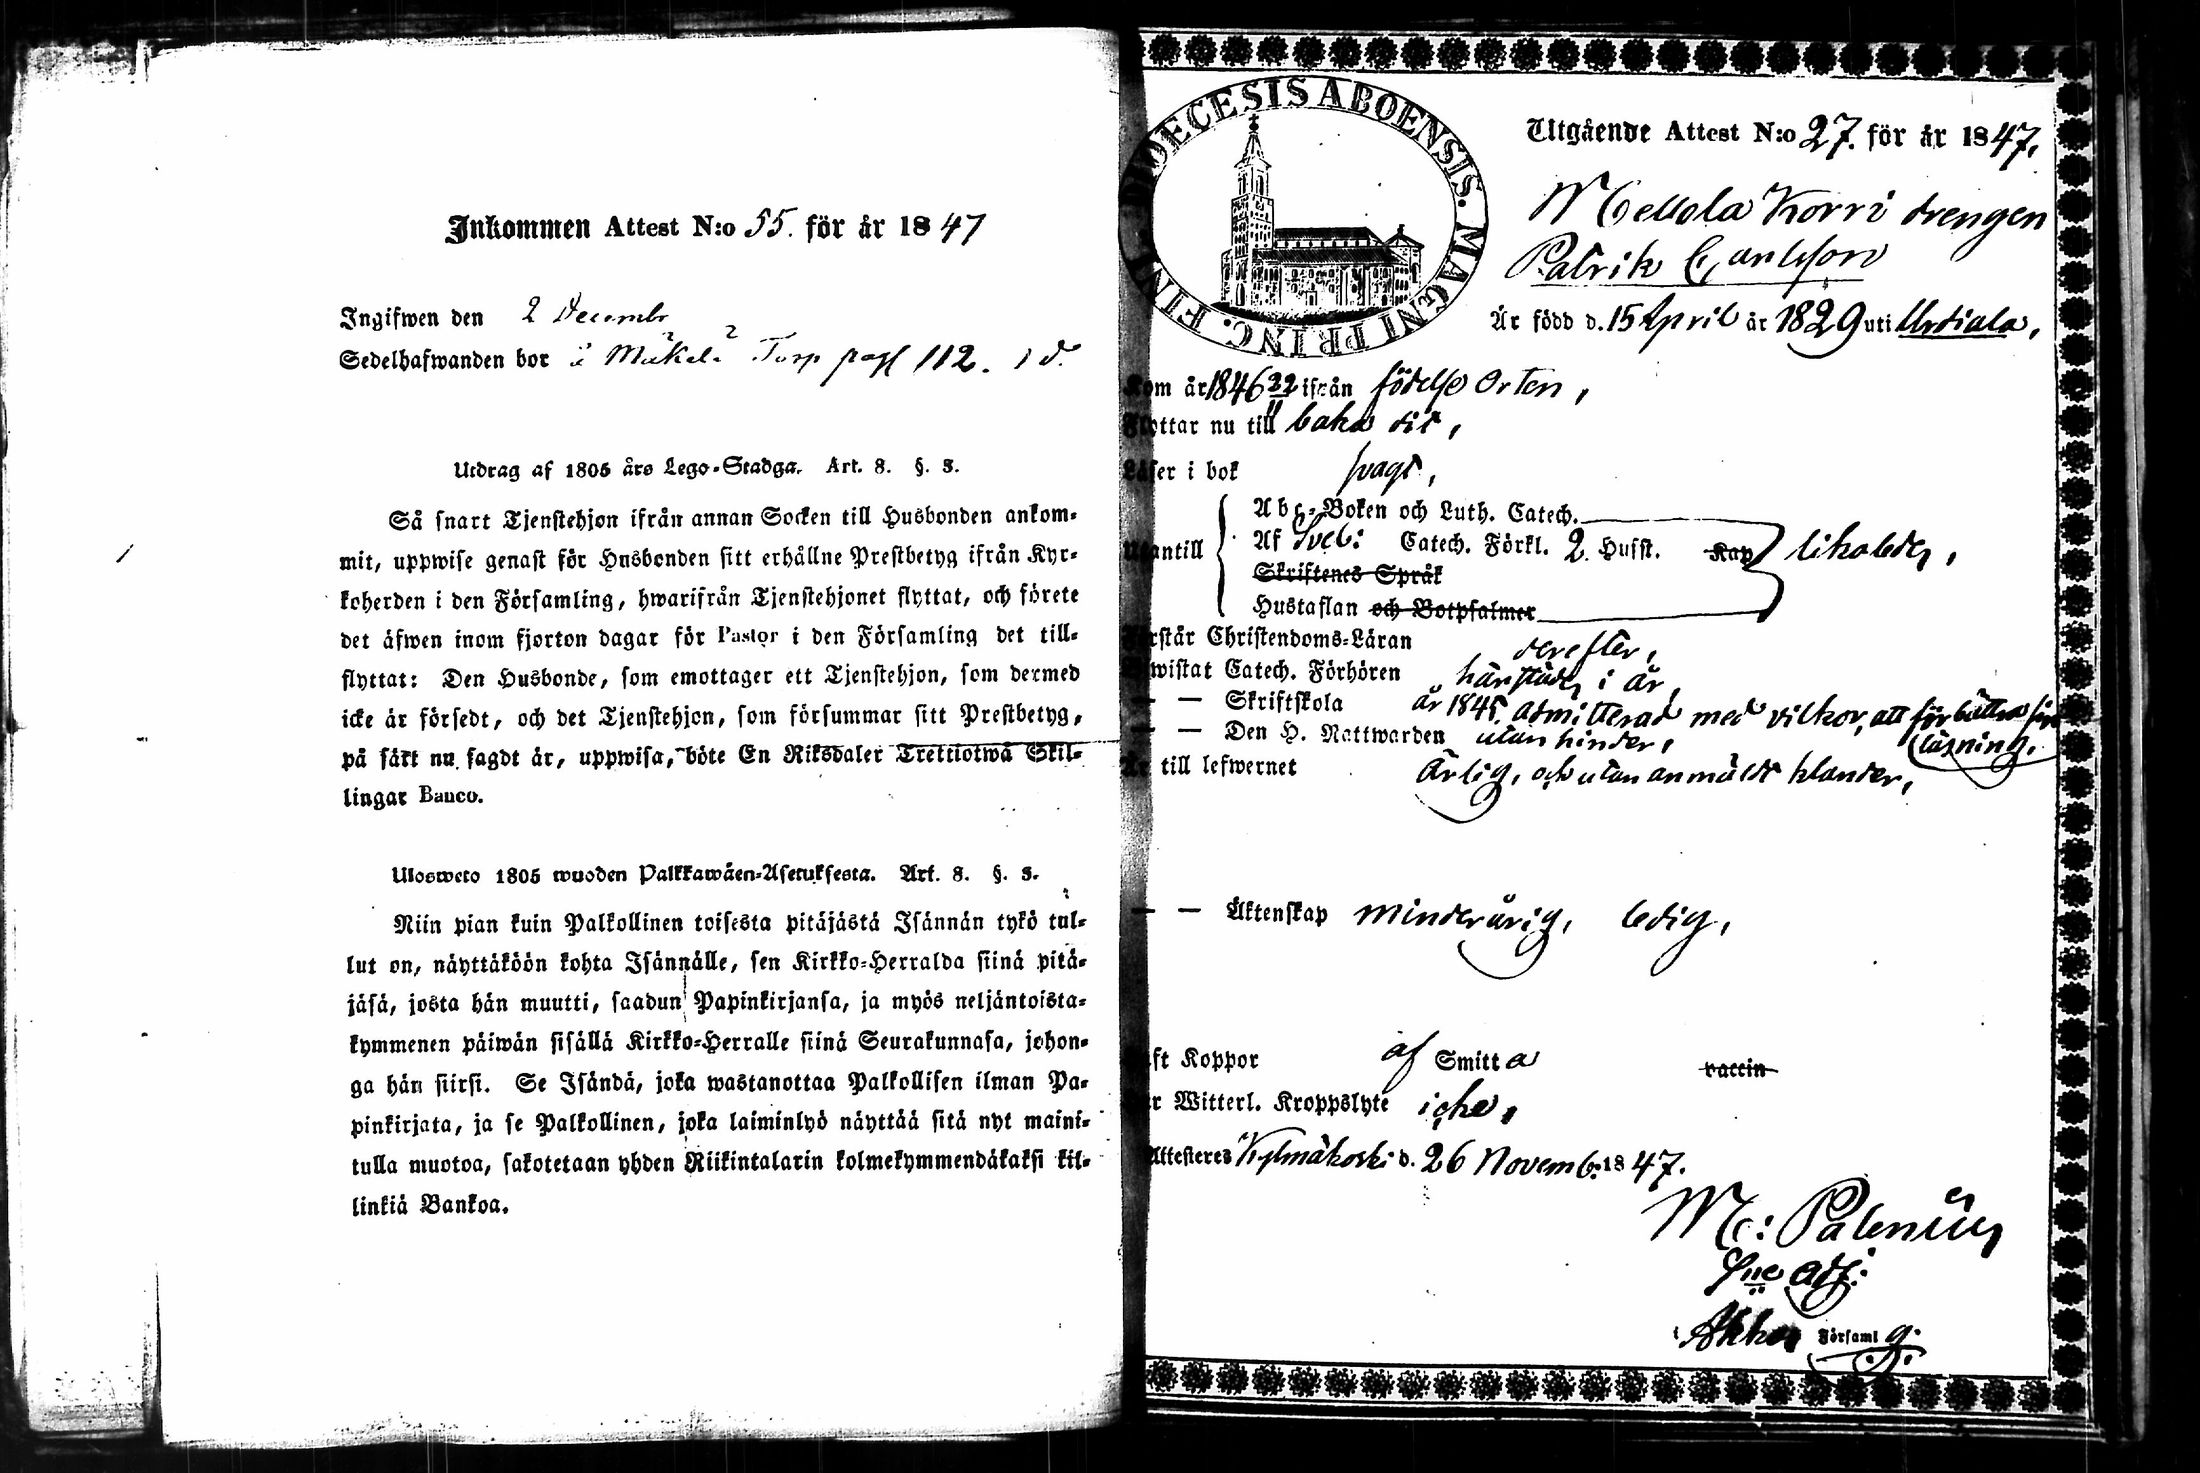 Inkommen Attest N:o 55. för år 1847
Ingifwen den 2 Decembr
Sedelhafwanden bor å Mäkelä Torp pag 112.
Utdrag af 1805 års Lego-Stadga. Art. 8. §. 3.
Så snart Tjenstehjon ifrån annan Socken till Husbonden ankom-
mit, uppwise genast för Husbonden sitt erhållne Prestbetyg ifrån Kyr-
koherden i den Församling, hwarifrån Tjenstehjonet flyttat, och förete
det äfwen inom fjorton dagar för Pastor i den Församling det till-
flyttat: Den Husbonde, som emottager ett Tjenstehjon, som dermed
icke är försedt, och det Tjenstehjon, som försummar sitt Prestbetyg,
på sätt nu sagdt är, uppwisa, böte En Riksdaler Trettiotwå Skil-
lingar Banco.
Ulosweto 1805 wuoden Palkkawäen-Asetuksesta. Art. 8. §. 3.
Niin pian kuin Palkollinen toisesta pitäjästä Isännän tykö tul-
lut on, näyttäköön kohta Isännälle, sen Kirkko-Herralda siinä pitä-
jäsä, josta hän muutti, saadun Papinkirjansa, ja myös neljäntoista-
kymmenen päiwän sisällä Kirkko-Herralle siinä Seurakunnasa, johon-
ga hän siirsi. Se Isändä, joka wastanottaa Palkollisen ilman Pa-
pinkirjata, ja se Palkollinen, joka laiminlyö näyttää sitä nyt maini-
tulla muotoa, sakotetaan yhden Riikintalarin kolmekymmendäkaksi kil-
linkiä Bankoa.
DIOECESIS ABOENSIS. MAGNI PRINC. FINL.
Utgående Attest N:o 27. för år 1847.
Korri drengen
Patrik Carlsson
Är född d. 15 April år 1829 uti Urdiala,
Kom år 1846 ifrån födelse Orten,
Flyttar nu till baka dit,
Läser i bok svagt,
Abc-Boken och Luth. Catech.
Utantill Af Sveb: Catech. Förkl. 2. Husst. Kap likaledes,
Skriftenes Språk
Hustaflan och Botpsalmer
Förstår Christendoms-Läran derefter,
Bewistat Catech. Förhören härstädes i år,
— — Skriftskola år 1845 admitterad med vilkor, att förbättra sin
läsning.
— — Den H. Nattwarden utan hinder,
Är till lefwernet Ärlig, och utan anmäldt klander,
— — Äktenskap minderårig, ledig,
Haft Koppor af Smitta vaccin
Har Witterl. Kroppslyte icke,
Attesteres Kylmäkoski d. 26 Novemb: 1847.
M: Palenius
Sac. adj:
i Akkas Församlg.